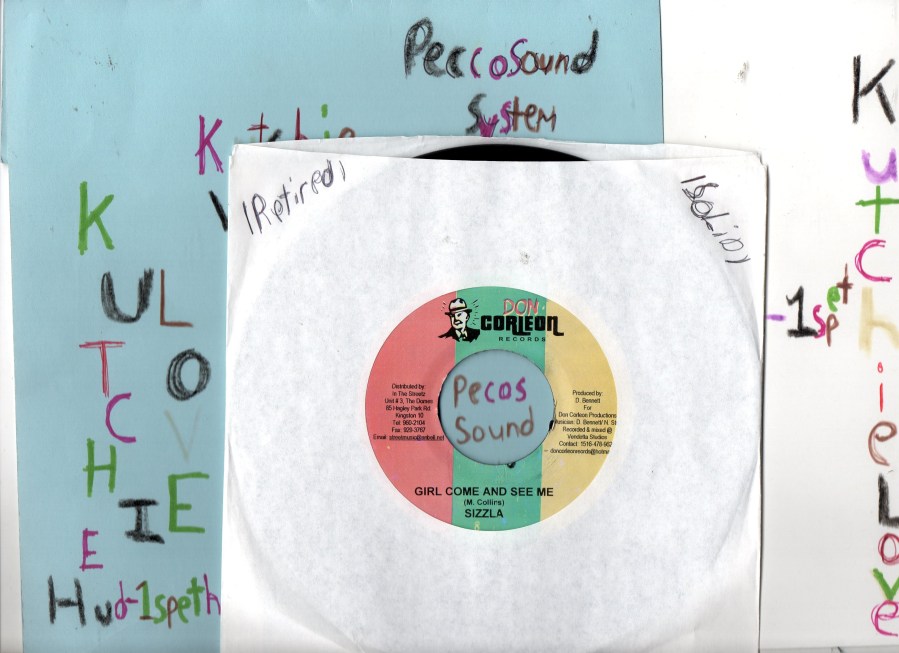 PeccoSound
System
Kutchie
KUTCHIE
LOVE
Hud-1speth
(Retired)
(SOLID)
DON
CORLEON
RECORDS
Distributed by:
In The Streetz
Unit # 3, The Domes
85 Hagley Park Rd.
Kingston 10
Tel: 960-2104
Fax: 929-3767
Email:
Pecos
Sound
Produced by:
D. Bennett
For
Don Corleon Productions
D. Bennett/ N. St
Recorded & mixed @
Vendetta Studios
Contact: 1516-476-962
doncorleonrecords@hotma
GIRL COME AND SEE ME
(M. Collins)
SIZZLA
-1spet
Kutchie
Love